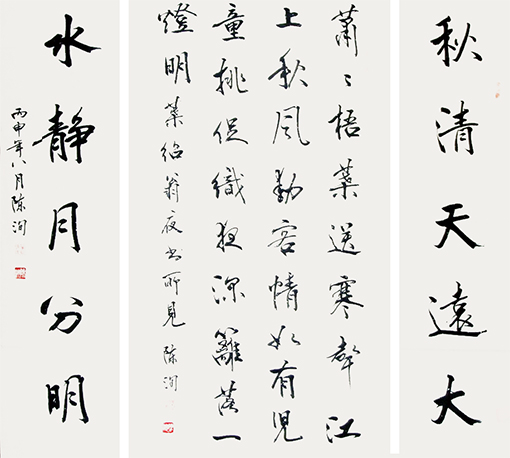 秋清天遠大
蕭〻梧葉送寒聲江
上秋風動客情知有児
童挑促織夜深籬落一
燈明葉紹翁夜書所見 陳洵
水静月分明
丙申年八月陳洵